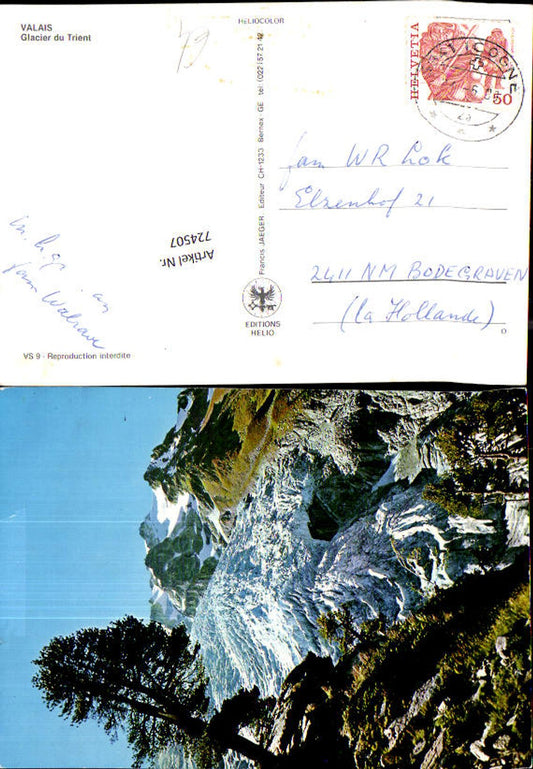 VALAIS
Glacier du Trient
HELIOCOLOR
HELVETIA
50
COGNE
fam WR Lok
Elzenhof 21
2411 NM BODEGRAVEN
(La Hollande)
Francis JAEGER. Editeur CH-1233 Bernex - GE tel. (022) 57 21
EDITIONS
HELIO
Artikel Nr.
724507
fam
VS 9 - Reproduction interdite